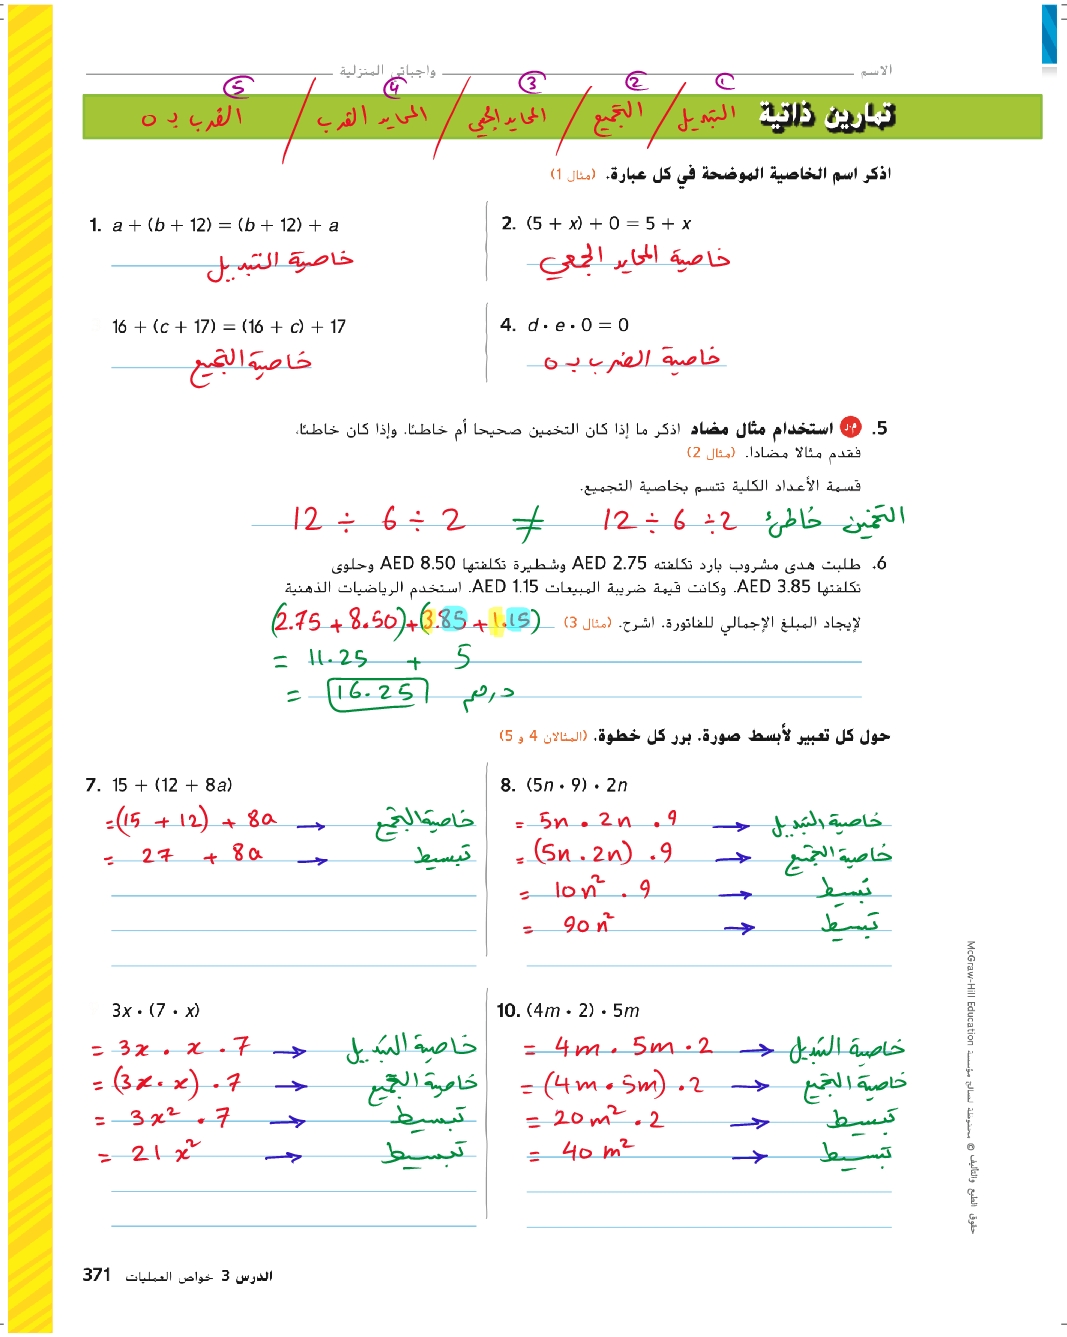 الاسم واجباتي المنزلية
① ② ③ ④ ⑤
تمارين ذاتية التبديل / التجميع / المحايد الجمعي / المحايد الضرب / الضرب بـ 0
اذكر اسم الخاصية الموضحة في كل عبارة. (مثال 1)
1. a + (b + 12) = (b + 12) + a
خاصية التبديل
2. (5 + x) + 0 = 5 + x
خاصية المحايد الجمعي
16 + (c + 17) = (16 + c) + 17
خاصية التجميع
4. d • e • 0 = 0
خاصية الضرب بـ 0
5. م.ر استخدام مثال مضاد اذكر ما إذا كان التخمين صحيحا أم خاطئا. وإذا كان خاطئا،
فقدم مثالا مضادا. (مثال 2)
قسمة الأعداد الكلية تتسم بخاصية التجميع.
التخمين خاطئ 12 ÷ 6 ÷ 2 ≠ 12 ÷ 6 ÷ 2
6. طلبت هدى مشروب بارد تكلفته AED 2.75 وشطيرة تكلفتها AED 8.50 وحلوى
تكلفتها AED 3.85. وكانت قيمة ضريبة المبيعات AED 1.15. استخدم الرياضيات الذهنية
لإيجاد المبلغ الإجمالي للفاتورة. اشرح. (مثال 3) (2.75 + 8.50) + (3.85 + 1.15)
= 11.25 + 5
= 16.25 درهم
حول كل تعبير لأبسط صورة. برر كل خطوة. (المثالان 4 و 5)
7. 15 + (12 + 8a)
= (15 + 12) + 8a → خاصية التجميع
= 27 + 8a → تبسيط
8. (5n • 9) • 2n
= 5n . 2n . 9 → خاصية التبديل
= (5n . 2n) . 9 → خاصية التجميع
= 10n² . 9 → تبسيط
= 90n² → تبسيط
3x • (7 • x)
= 3x . x . 7 → خاصية التبديل
= (3x . x) . 7 → خاصية التجميع
= 3x² . 7 → تبسيط
= 21x² → تبسيط
10. (4m • 2) • 5m
= 4m . 5m . 2 → خاصية التبديل
= (4m . 5m) . 2 → خاصية التجميع
= 20m² . 2 → تبسيط
= 40m² → تبسيط
حقوق الطبع والتأليف © محفوظة لصالح مؤسسة McGraw-Hill Education
الدرس 3 خواص العمليات 371